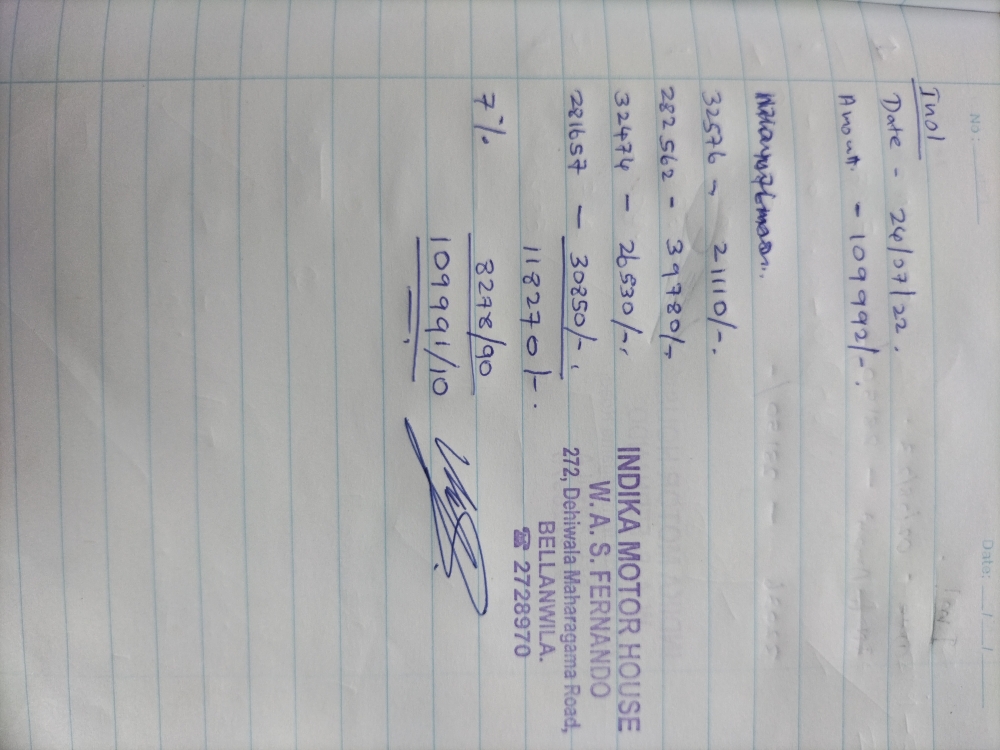 No:
Date: / /
Inol
Date - 24/07/22.
Amoutt - 109992/-.
32576 - 21110/-.
282562 - 39780/-
32474 - 26530/-.
281657 - 30850/-.
118270/-.
7% 8278/90
109991/10
INDIKA MOTOR HOUSE
W. A. S. FERNANDO
272, Dehiwala Maharagama Road,
BELLANWILA.
☎ 2728970